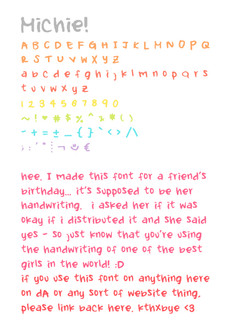 Michie!
A B C D E F G H I J K L M N O P Q
R S T U V W X Y Z
a b c d e f g h i j k l m n o p q r s
t u v w x y z
1 2 3 4 5 6 7 8 9 0
~ ! * # $ % ^ & * ( )
- + = ± _ { } ` < > / \
hee, I made this font for a friend's
birthday... it's supposed to be her
handwriting. i asked her if it was
okay if i distributed it and she said
yes - so just know that you're using
the handwriting of one of the best
girls in the world! :D
if you use this font on anything here
on dA or any sort of website thing,
please link back here. kthxbye <3